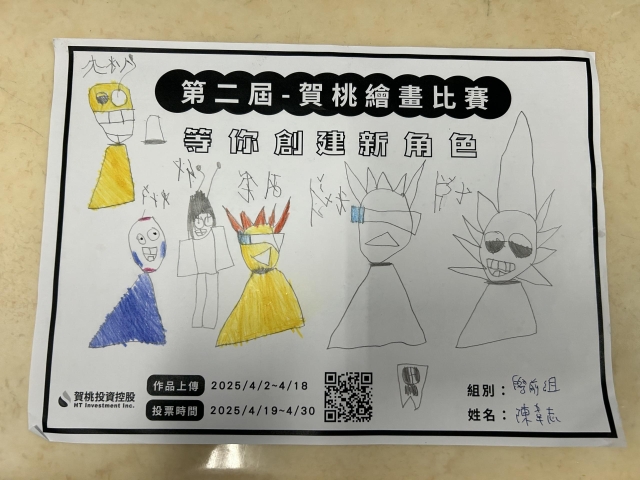 第二屆-賀桃繪畫比賽
等你創建新角色
賀桃投資控股
HT Investment Inc.
作品上傳 2025/4/2~4/18
投票時間 2025/4/19~4/30
組別：學前組
姓名：陳韋志